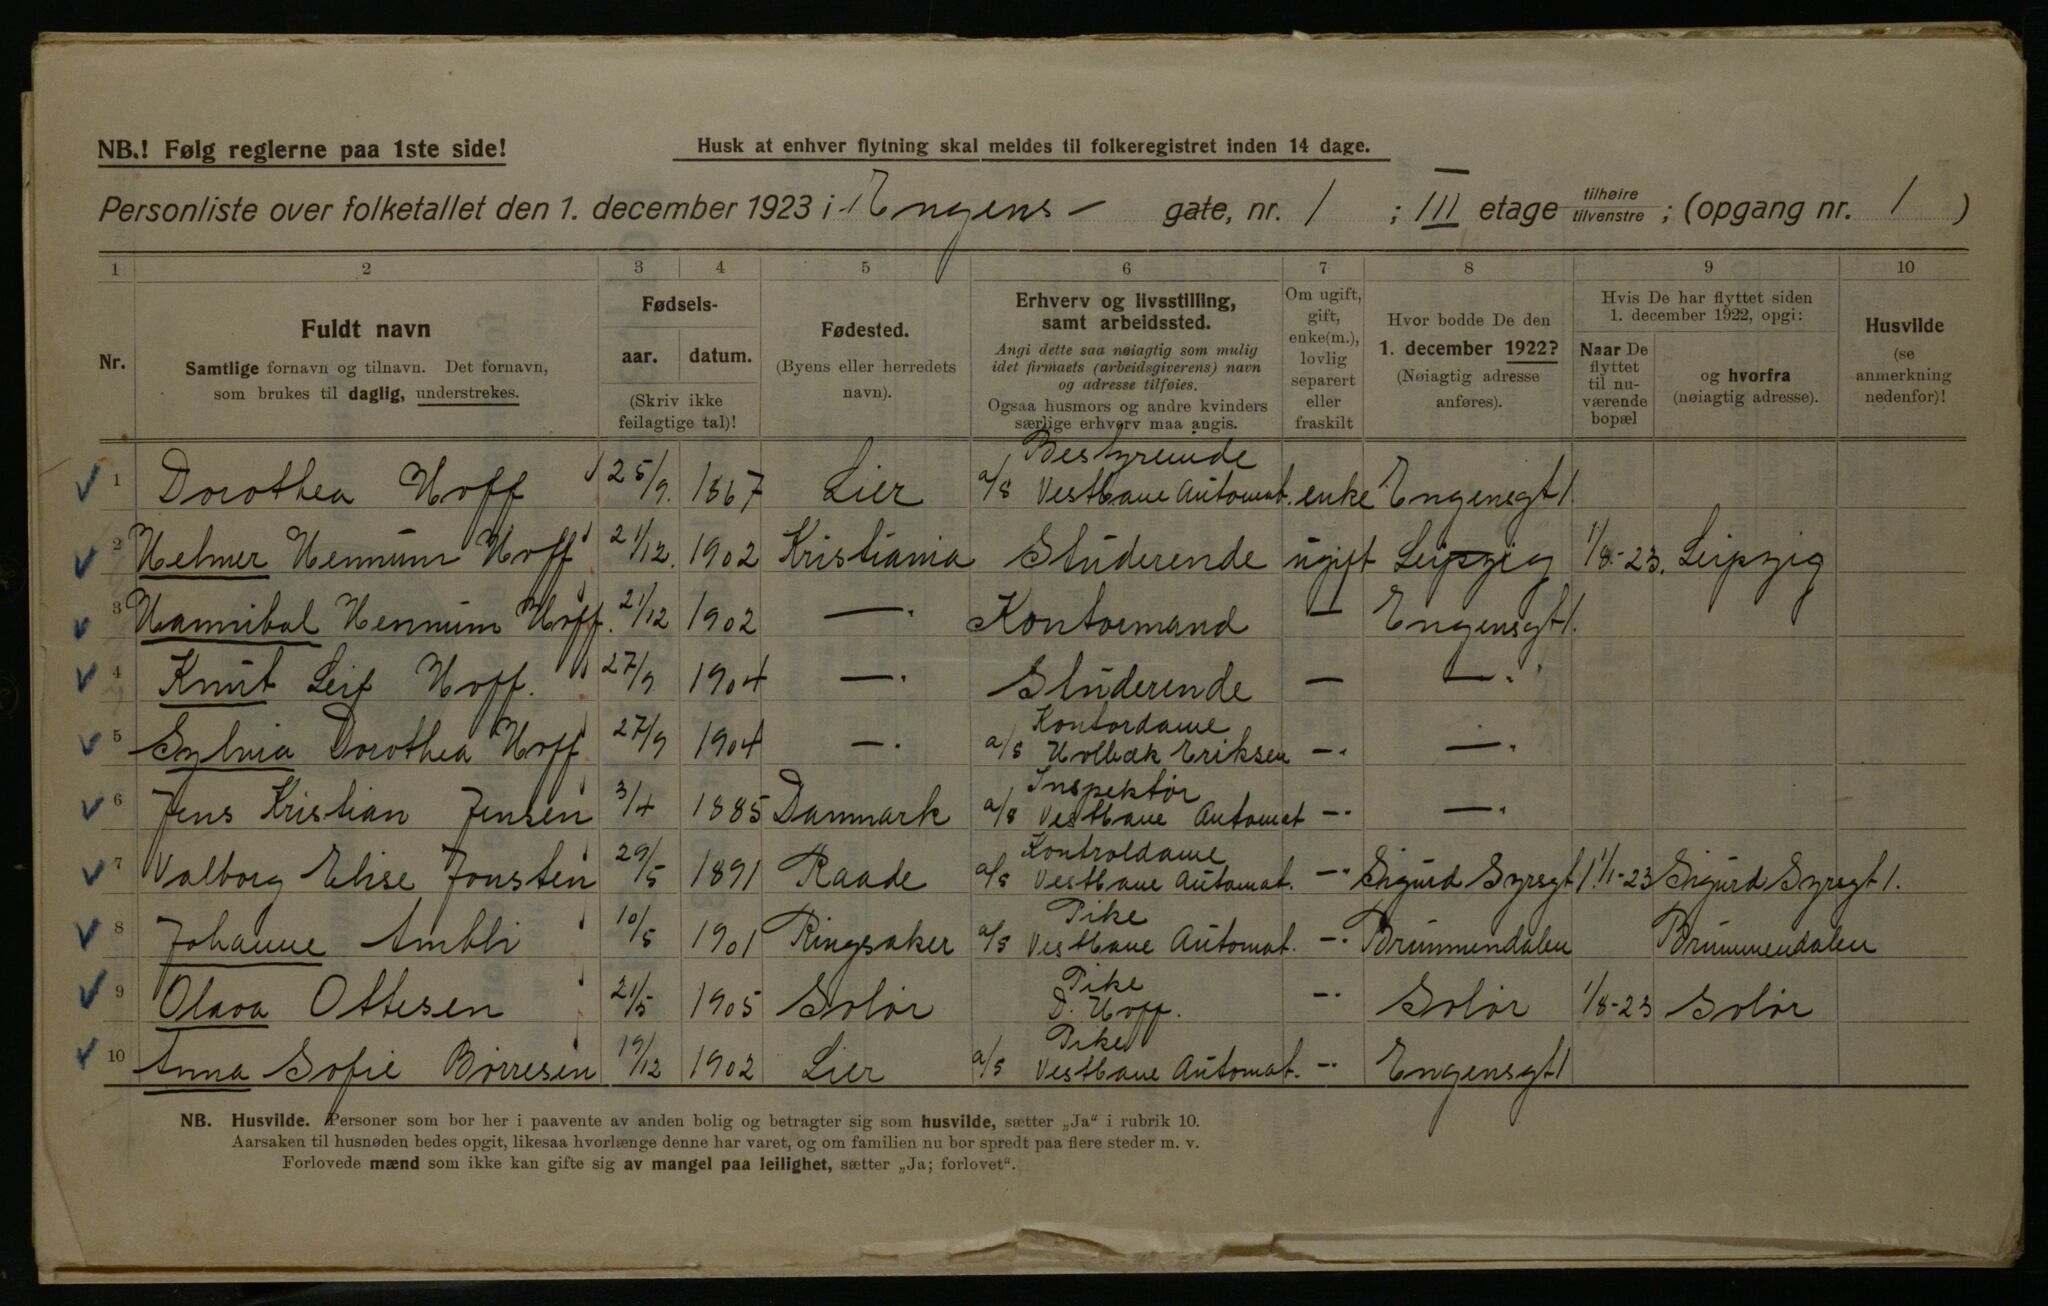 NB.! Følg reglerne paa 1ste side!
Husk at enhver flytning skal meldes til folkeregistret inden 14 dage.
Personliste over folketallet den 1. december 1923 i Engens - gate, nr. 1 ; III etage tilhøire tilvenstre ; (opgang nr. 1 )
1 2 3 4 5 6 7 8 9 10
Nr.
Fuldt navn
Samtlige fornavn og tilnavn. Det fornavn,
som brukes til daglig, understrekes.
Fødsels-
aar. datum.
(Skriv ikke
feilagtige tal)!
Fødested.
(Byens eller herredets
navn).
Erhverv og livsstilling,
samt arbeidssted.
Angi dette saa nøiagtig som mulig
idet firmaets (arbeidsgiverens) navn
og adresse tilføies.
Ogsaa husmors og andre kvinders
særlige erhverv maa angis.
Om ugift,
gift,
enke(m.),
lovlig
separert
eller
fraskilt
Hvor bodde De den
1. december 1922?
(Nøiagtig adresse
anføres).
Hvis De har flyttet siden
1. december 1922, opgi:
Naar De
flyttet
til nu-
værende
bopæl
og hvorfra
(nøiagtig adresse).
Husvilde
(se
anmerkning
nedenfor)!
1 Dorothea Hoff 25/9. 1867 Lier Bestyrende a/s Vestbane Automat. enke Engensgt 1.
2 Helmer Hennum Hoff 21/12. 1902 Kristiania Studerende ugift Leipzig 1/8-23. Leipzig
3 Hannibal Hennum Hoff. 21/12 1902 —. Kontormand — Engensgt 1.
4 Knut Leif Hoff. 27/9 1904 —. Studerende — —.
5 Sylvia Dorothea Hoff 27/9 1904 —. Kontordame a/s Holbæk Eriksen —. —.
6 Jens Kristian Jensen 3/4 1885 Danmark Inspektør a/s Vestbane Automat —. —.
7 Valborg Elise Jonsten 29/5 1891 Raade Kontroldame a/s Vestbane Automat. —. Sigurd Syrsgt 1. 1/1-23 Sigurd Syrsgt 1.
8 Johanne Ambli 10/5 1901 Ringsaker Pike a/s Vestbane Automat. —. Brummendalen Brummendalen
9 Olava Ottesen 21/5 1905 Solør Pike D. Hoff. —. Solør 1/8-23 Solør
10 Anna Sofie Børresen 19/12 1902 Lier Pike a/s Vestbane Automat. —. Engensgt 1
NB. Husvilde. Personer som bor her i paavente av anden bolig og betragter sig som husvilde, sætter „Ja“ i rubrik 10.
Aarsaken til husnøden bedes opgit, likesaa hvorlænge denne har varet, og om familien nu bor spredt paa flere steder m. v.
Forlovede mænd som ikke kan gifte sig av mangel paa leilighet, sætter „Ja; forlovet“.